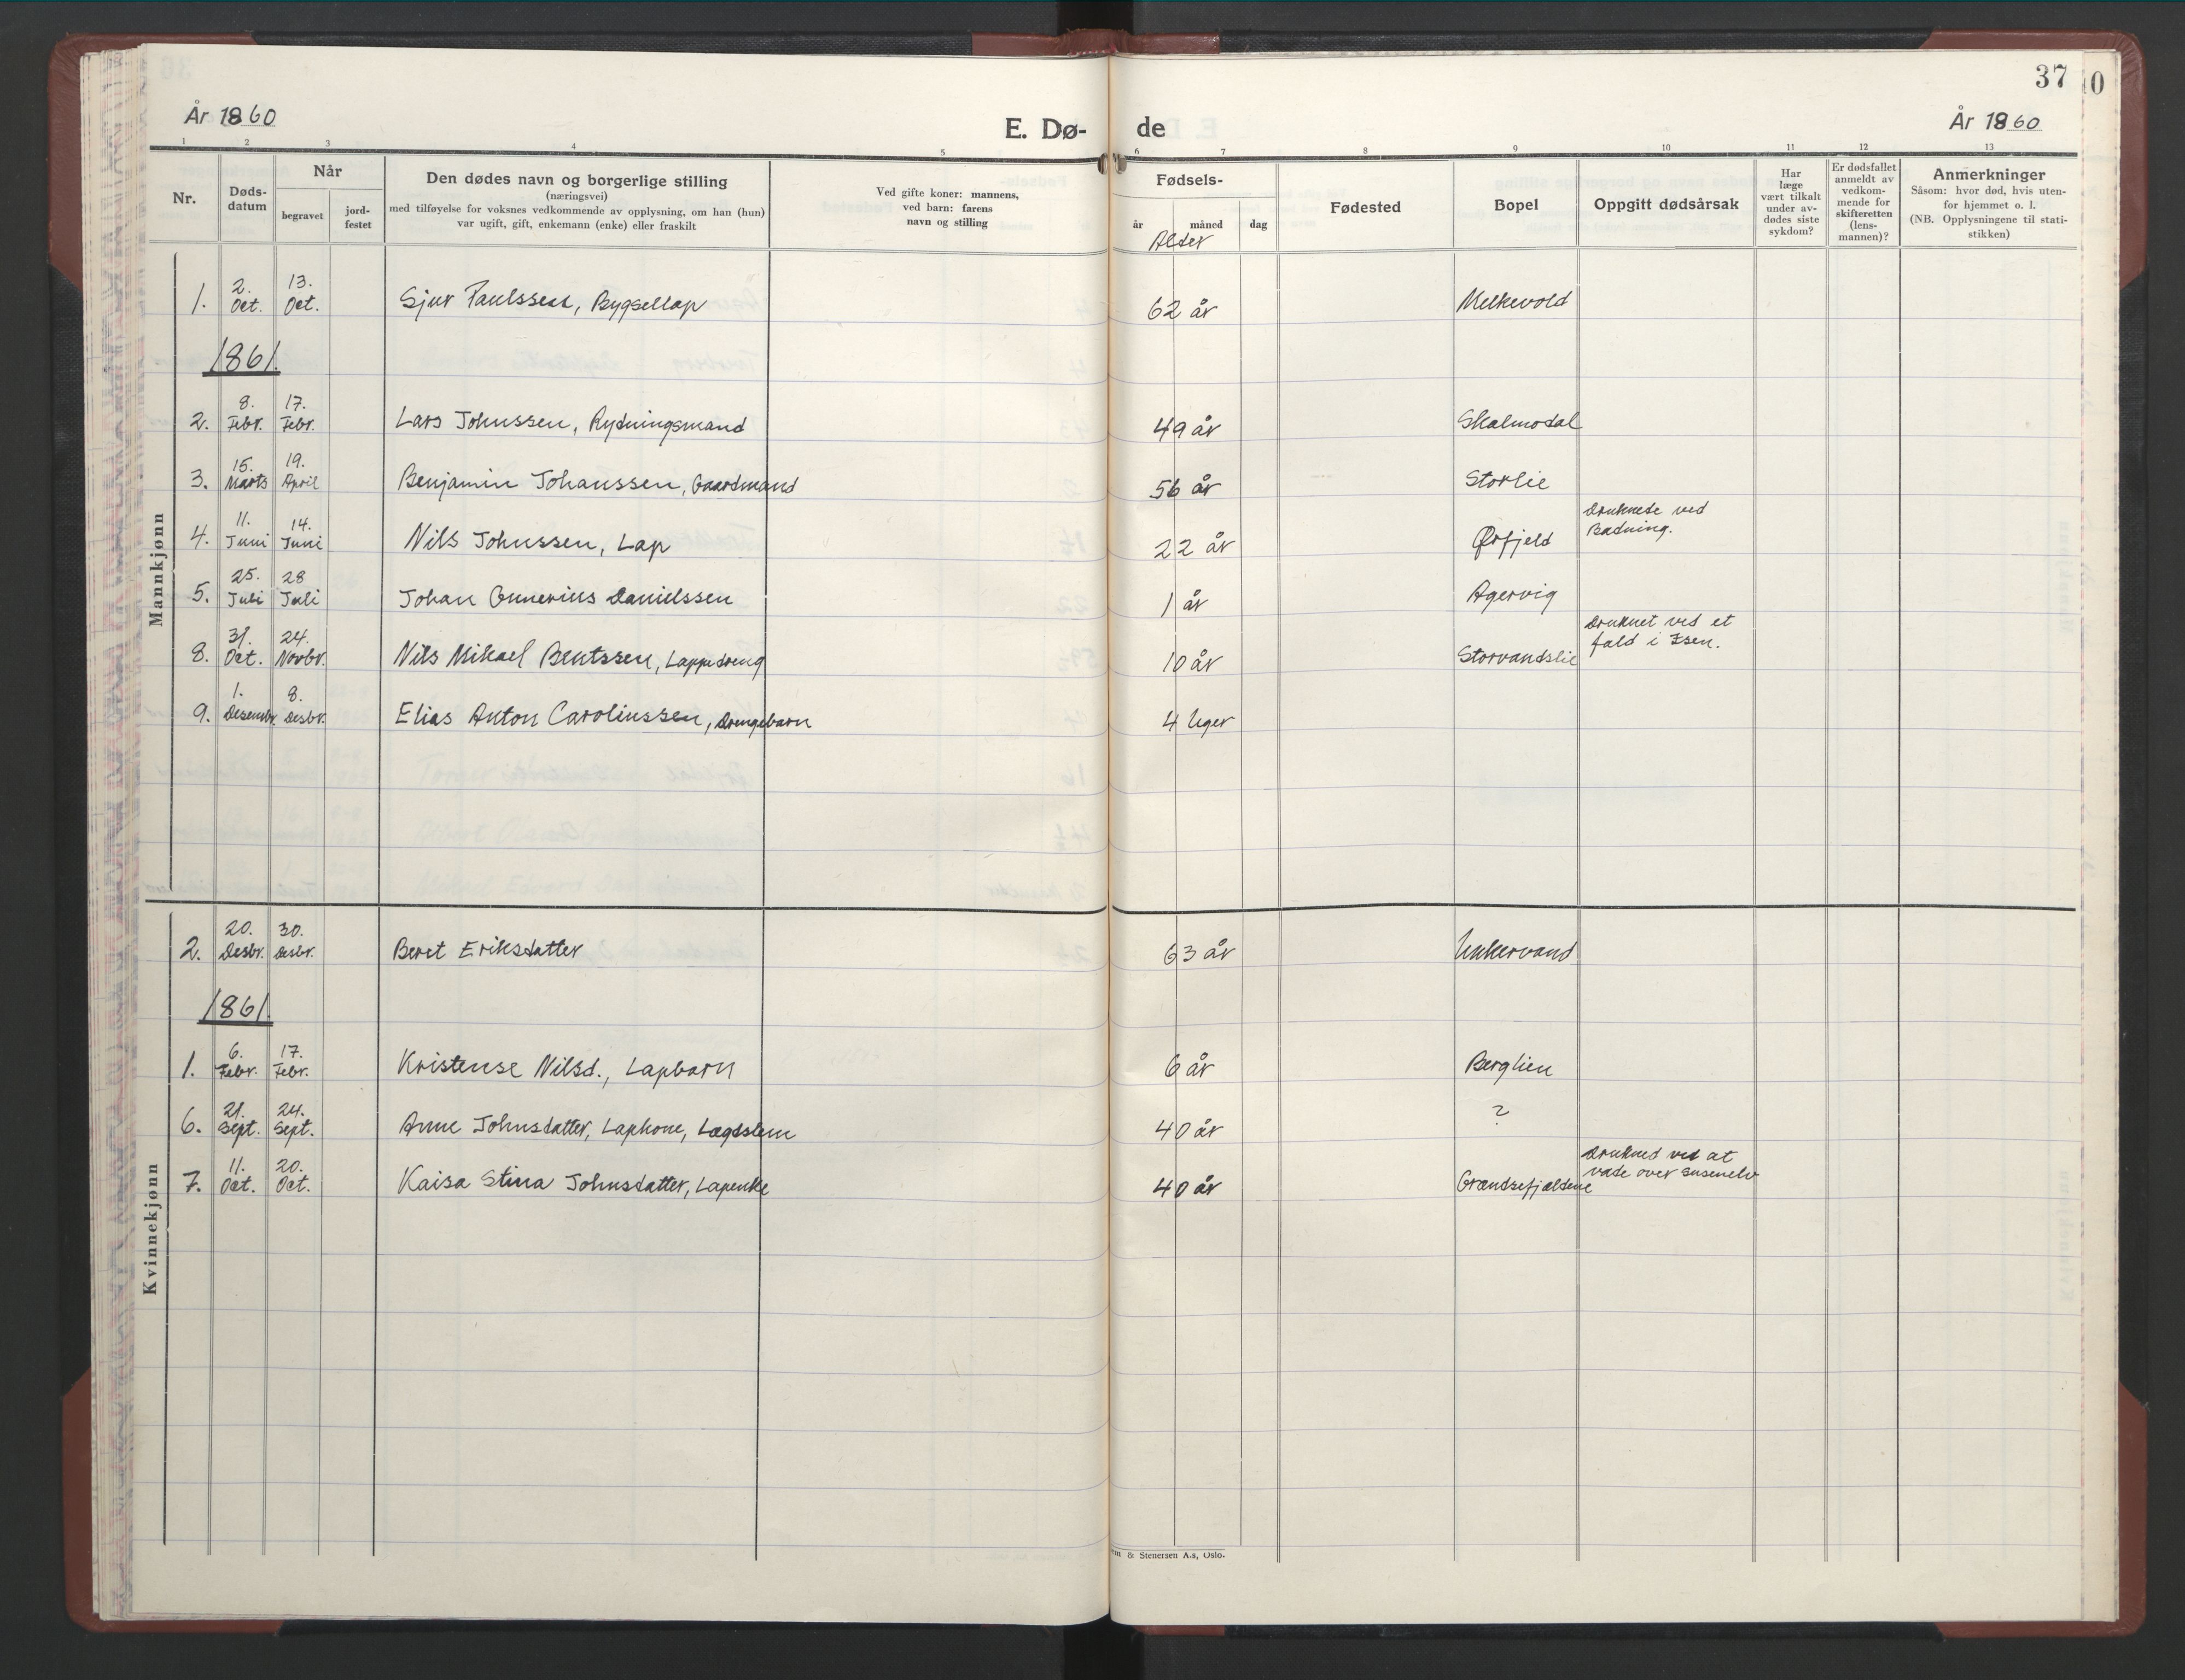 37
År 1860
E. Dø-
de
År 1860
1 2 3 4 5 6 7 8 9 10 11 12 13
Nr.
Døds-
datum
Når
begravet
jord-
festet
Den dødes navn og borgerlige stilling
(næringsvei)
med tilføyelse for voksnes vedkommende av opplysning, om han (hun)
var ugift, gift, enkemann (enke) eller fraskilt
Ved gifte koner: mannens,
ved barn: farens
navn og stilling
Fødsels-
år måned dag
Alder
Fødested
Bopel
Oppgitt dødsårsak
Har
læge
vært tilkalt
under av-
dødes siste
sykdom?
Er dødsfallet
anmeldt av
vedkom-
mende for
skifteretten
(lens-
mannen)?
Anmerkninger
Såsom: hvor død, hvis uten-
for hjemmet o. l.
(NB. Opplysningene til stati-
stikken)
Mannkjønn
1. 2. Oct. 13. Oct. Sjur Paulssen, Bygsellap 62 år Melkevold
1861
2. 8. Febr. 17. Febr. Lars Johnssen, Rydningsmand 49 år Skalmodal
3. 15. Marts 19. April Benjamin Johanssen, Gaardmand 56 år Storlie
4. 11. Juni 14. Juni Nils Johnssen, Lap 22 år Ørfjeld Druknede ved
Badning.
5. 25. Juli 28 Juli Johan Gunerius Danielssen 1 år Agervig
8. 31. Oct. 24. Novbr. Nils Mikael Bentssen, Lappedreng 10 år Storvandslie Druknet ved et
fald i Isen.
9. 1. Desembr. 8. Desbr. Elias Anton Carolinssen, Drengebarn 4 Uger
Kvinnekjønn
2. 20. Desbr. 30. Desbr. Beret Eriksdatter 63 år Unkervand
1861
1. 6. Febr. 17. Febr. Kristense Nilsd., Lapbarn 6 år Berglien
6. 21. Sept. 24. Sept. Anne Johnsdatter, Lapkone, Lægdslem 40 år ?
7. 11. Oct. 20. Oct. Kaisa Stina Johnsdatter, Lapenke 40 år Grændsefjeldene Drukned ved at
vade over Susenelv
& Stenersen A.s, Oslo.